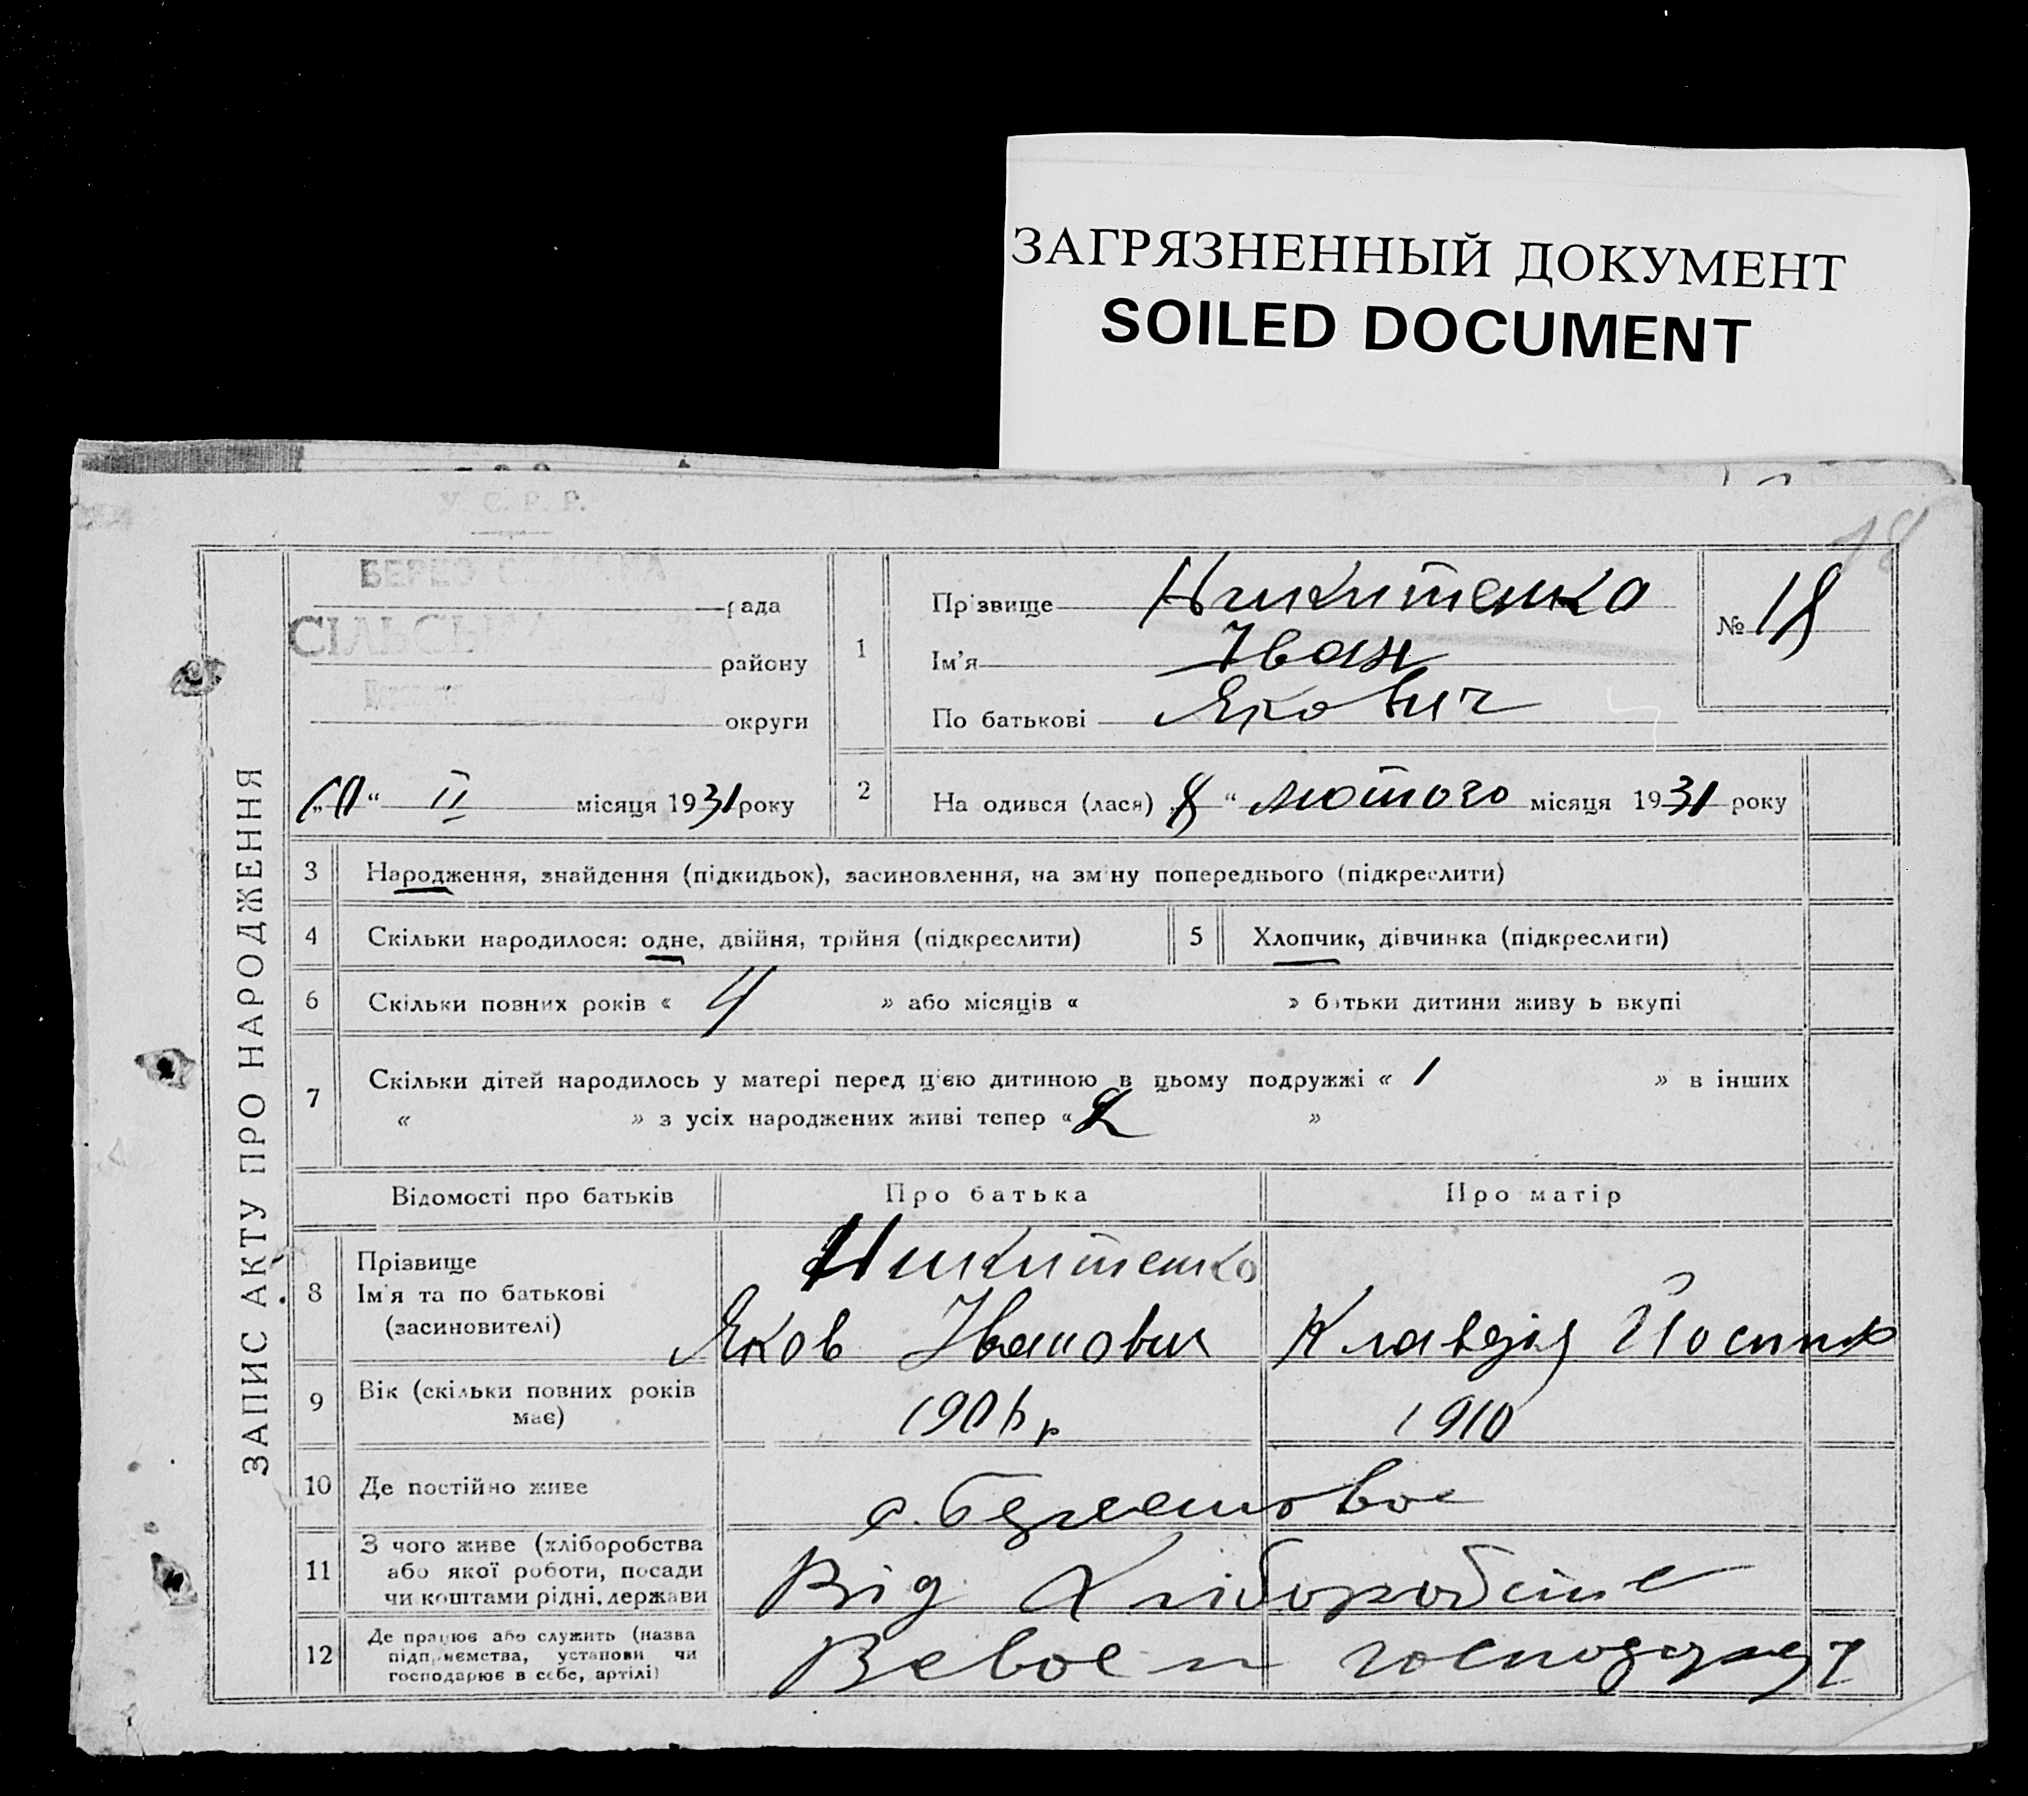 ЗАГРЯЗНЕННЫЙ ДОКУМЕНТ
SOILED DOCUMENT
У. С. Р. Р.
18
ЗАПИС АКТУ ПРО НАРОДЖЕННЯ
рада
СІЛЬСЬКА
району
округи
„10“ II місяця 1931 року
1
Прізвище Никитенко
Ім'я Іван
По батькові Якович
№ 18
2
На одився (лася) „8“ лютого місяця 1931 року
3 Народження, знайдення (підкидьок), засиновлення, на зміну попереднього (підкреслити)
4 Скільки народилося: одне, двійня, трійня (підкреслити)
5 Хлопчик, дівчинка (підкреслити)
6 Скільки повних років « 4 » або місяців « » батьки дитини живу ь вкупі
7 Скільки дітей народилось у матері перед цією дитиною в цьому подружжі « 1 » в інших
« » з усіх народжених живі тепер « 2 »
Відомості про батьків Про батька Про матір
8 Прізвище Никитенко
Ім'я та по батькові
(засиновителі) Яков Іванович Клавдія Йосип
9 Вік (скільки повних років
має) 1906 р 1910
10 Де постійно живе с.
11 З чого живе (хліборобства
або якої роботи, посади
чи коштами рідні, держави
Від Хліборобст
12 Де працює або служить (назва
підприємства, установи чи
господарює в себе, артілі)
В своєм